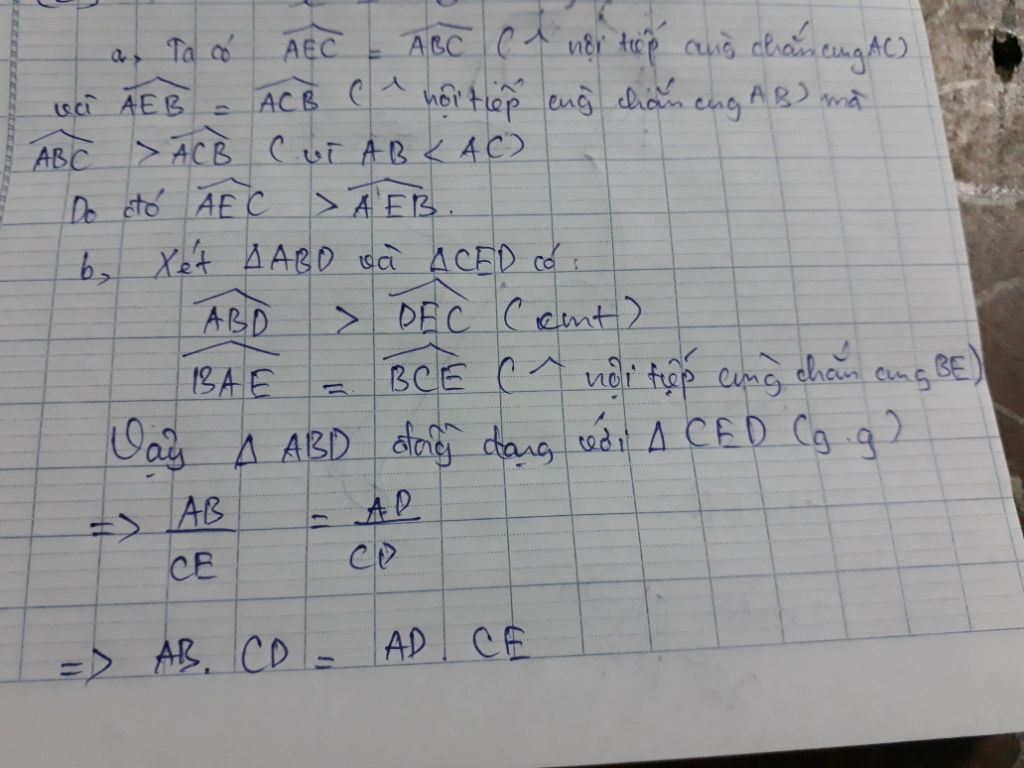 a, Ta có AEC = ABC (^ nội tiếp cùng chắn cung AC)
và AEB = ACB (^ nội tiếp cùng chắn cung AB) mà
ABC > ACB (vì AB < AC)
Do đó AEC > AEB.
b, Xét ΔABD và ΔCED có:
ABD > DEC (cmt)
BAE = BCE (^ nội tiếp cùng chắn cung BE)
Vậy Δ ABD đồng dạng với Δ CED (g.g)
=> AB/CE = AD/CD
=> AB. CD = AD. CE